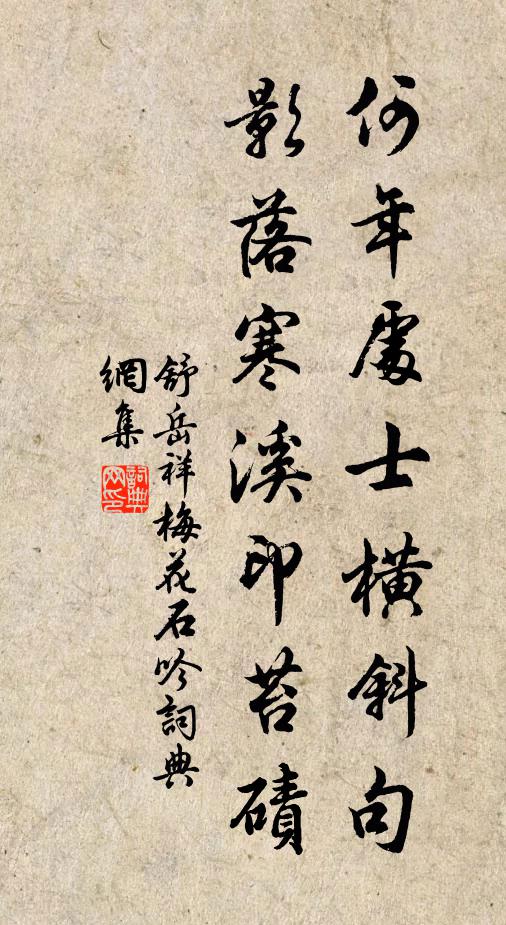 何年處士橫斜句
影落寒溪印苔磧
舒岳祥梅花石吟詞典
網集
詞典
網印